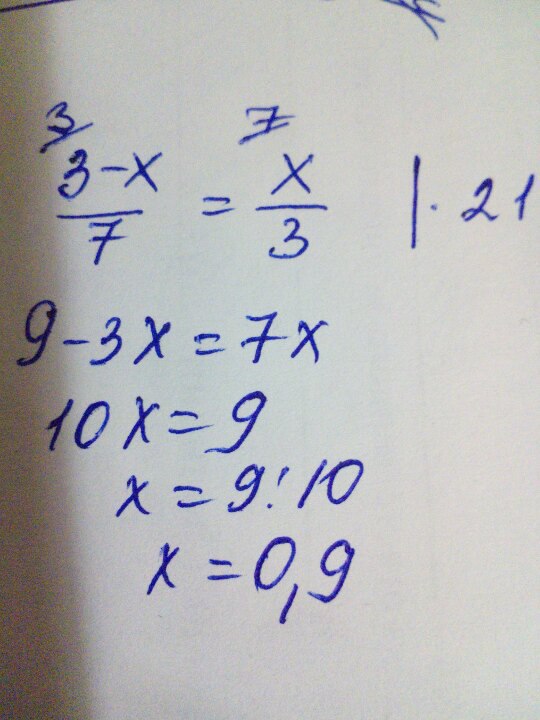 3 7
3-x/7 = x/3 | · 21
9-3x=7x
10x=9
x=9:10
x=0,9